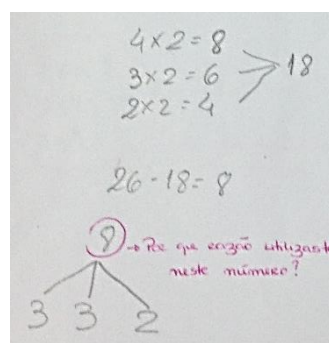 4×2=8
3×2=6
2×2=4
18
26-18=8
8 → Por que razão utilizast
neste número?
3 3 2